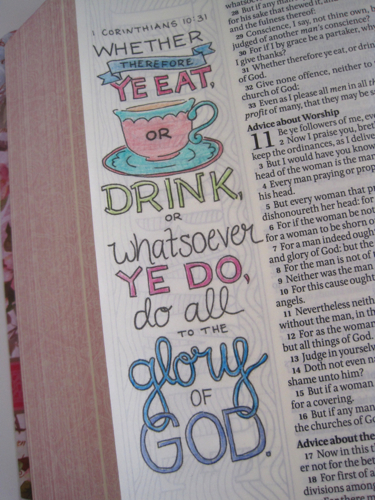 1 CORINTHIANS 10:31
WHETHER
THEREFORE
YE EAT,
OR
DRINK,
OR
whatsoever
YE DO,
do all
TO THE
glory
OF
GOD.
28 But if any man
for his sake that shewed it, and
and the fulness thereof:
29 Conscience, I say, not thine own, b
judged of another man's conscience?
30 For if I by grace be a partaker, why
I give thanks?
31 Whether therefore ye eat, or drin
of God.
32 Give none offence, neither to
church of God:
33 Even as I please all men in all th
profit of many, that they may be s
Advice about Worship
11 Be ye followers of me, eve
2 Now I praise you, breth
keep the ordinances, as I deliver
3 But I would have you know
head of the woman is the man
4 Every man praying or prop
his head.
5 But every woman that pr
dishonoureth her head: for
6 For if the woman be not
for a woman to be shorn o
7 For a man indeed ought
and glory of God: but the
8 For the man is not of
9 Neither was the man
10 For this cause ought
angels.
11 Nevertheless neith
without the man, in th
12 For as the woman
but all things of God.
13 Judge in yourselv
14 Doth not even na
shame unto him?
15 But if a woman
for a covering.
16 But if any man
the churches of Go
Advice about the
17 Now in this th
er not for the bet
18 For first of a
divisions among